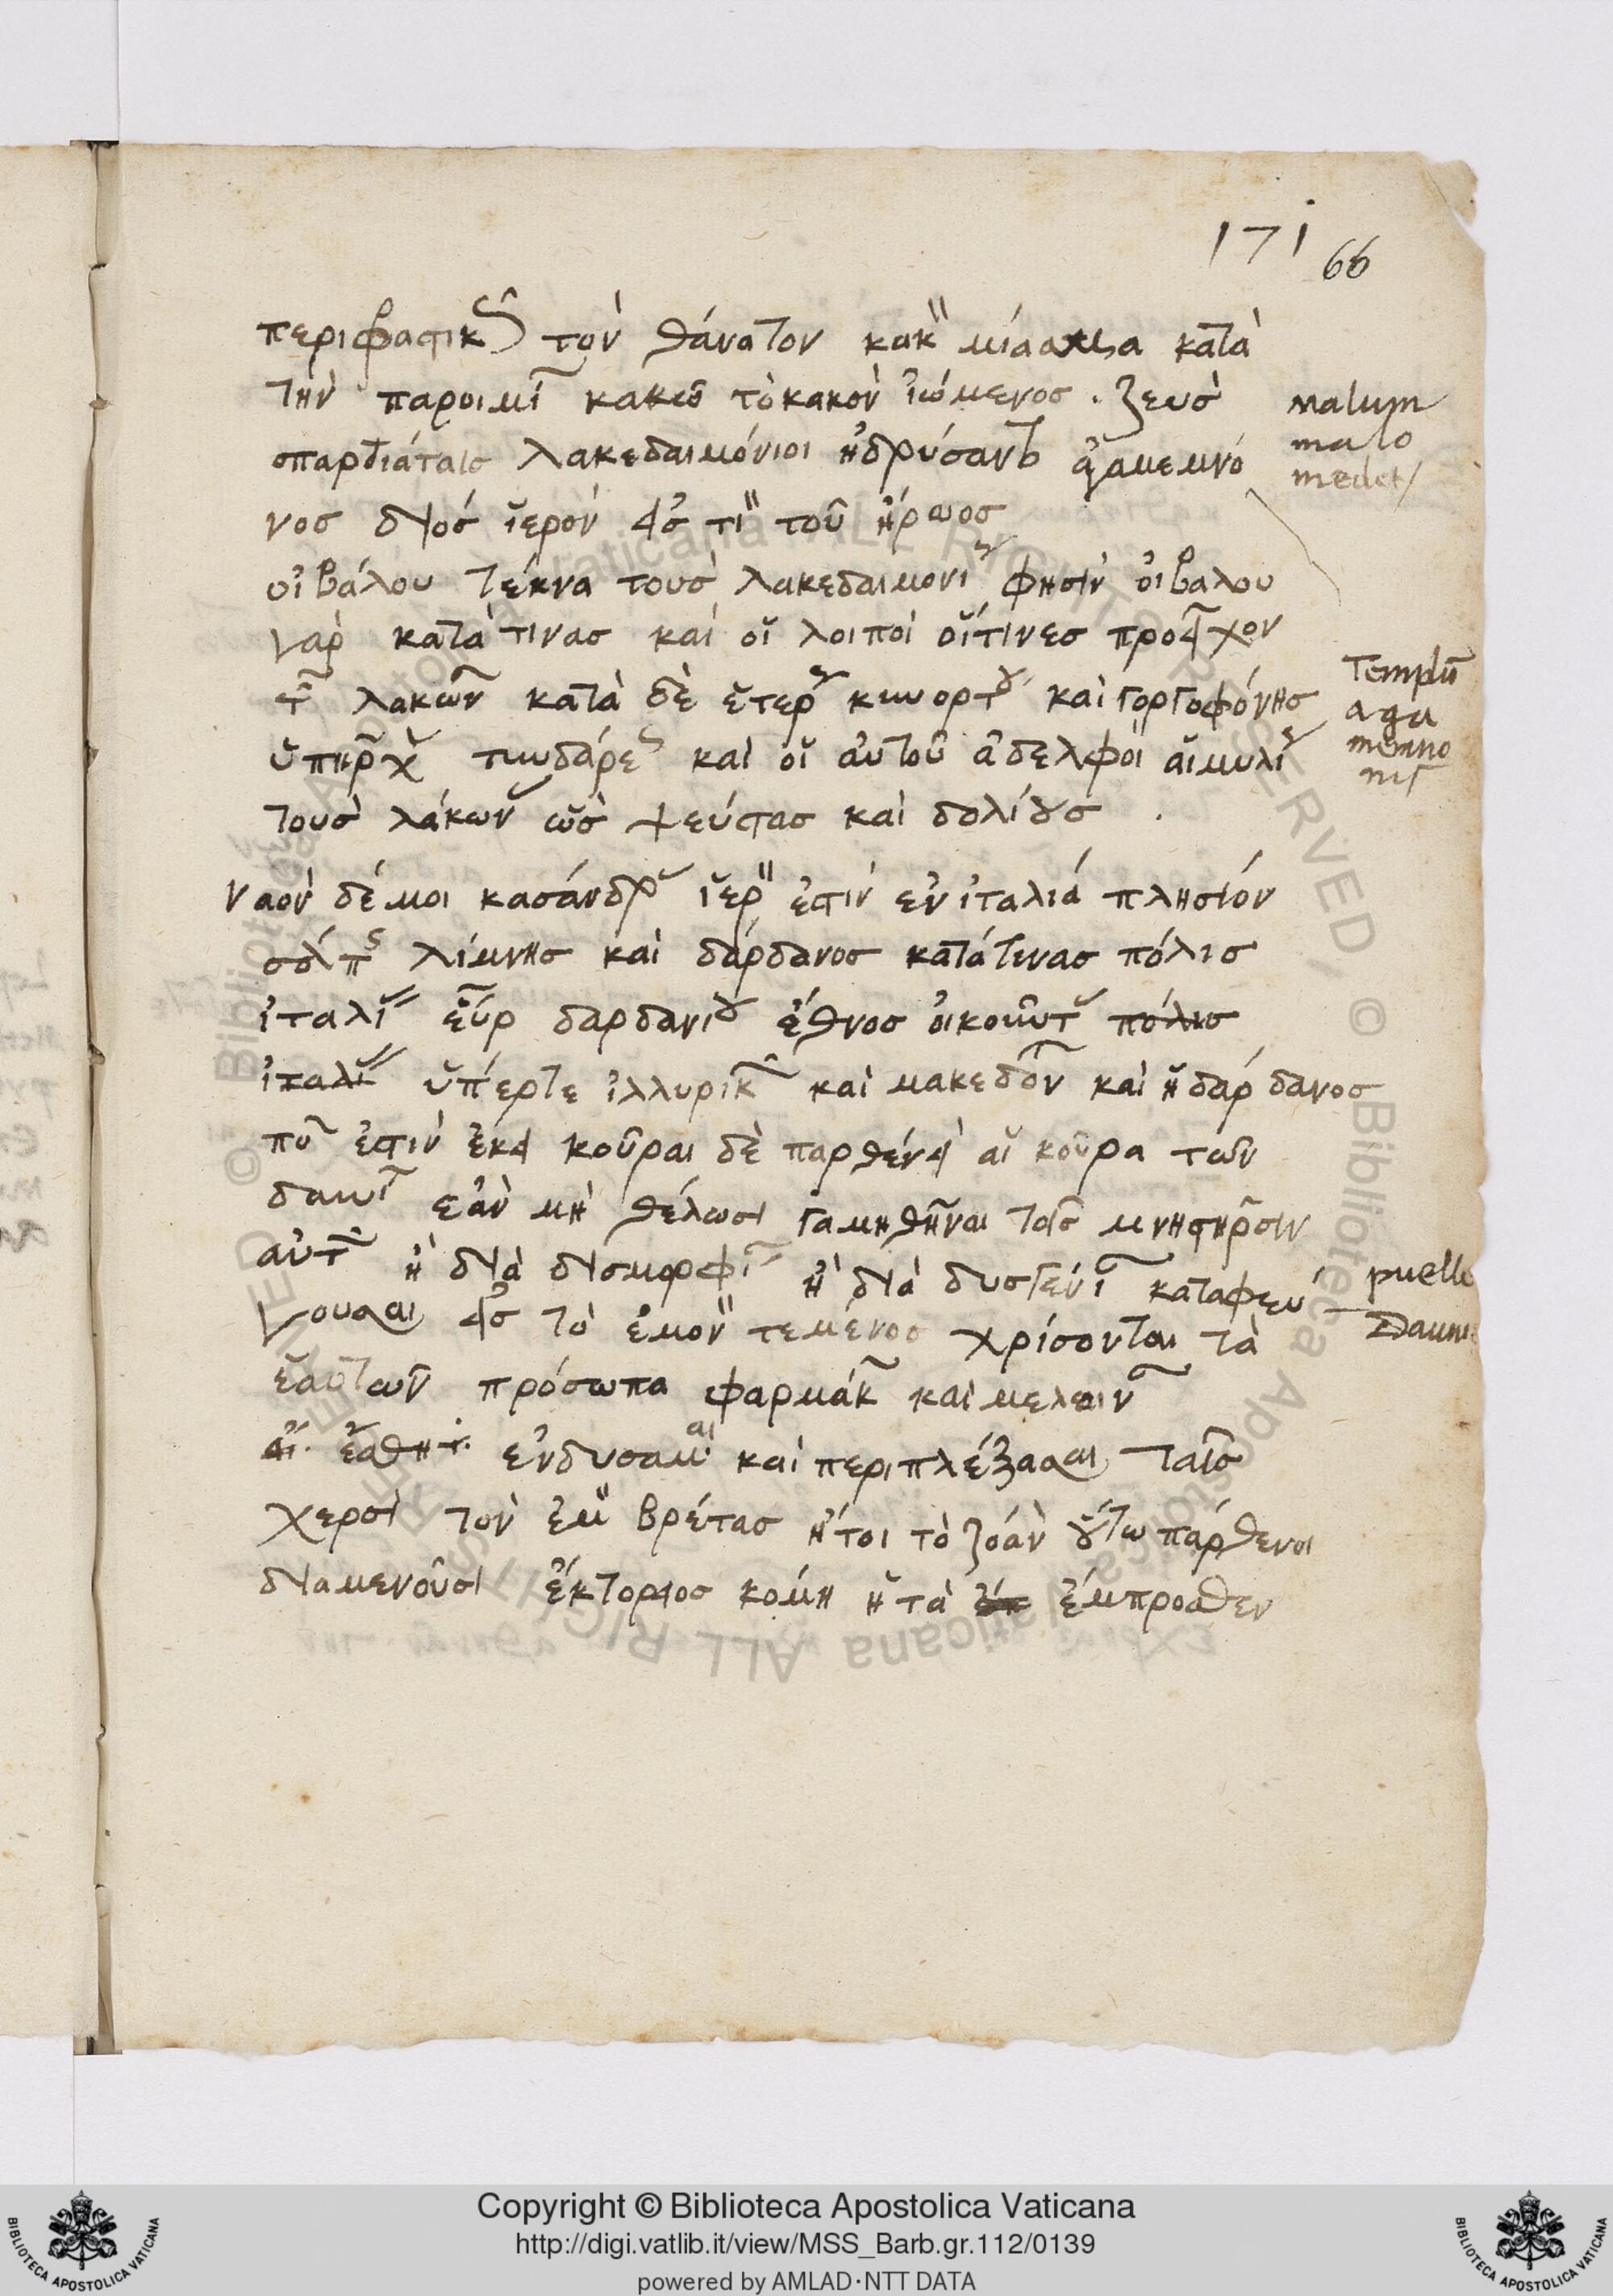 171
66
περιφραστικῶς τὸν θάνατον κακὸν μίασμα κατὰ
τὴν παροιμίαν κακῶ τὸ κακὸν ἰώμενος . ζευσ
σπαρτιάταις λακεδαιμόνιοι ἡδρύσαντο ἀγαμεμνό
νος διός ἱερόν εἰς τιμὴν τοῦ ἥρωος
οἰβάλου τέκνα τοὺς λακεδαιμονίους φησὶν οἰβάλου
γὰρ κατά τινας καὶ οἱ λοιποὶ οἵτινες προεῖχον
τῶν λακώνων κατὰ δὲ ἑτέρους κυνόρτου καὶ γοργοφόνης
ὑπῆρχε τυνδάρεως καὶ οἱ αὐτοῦ ἀδελφοὶ αἱμυλίους
τοὺς λάκωνας ὡς ψεύστας καὶ δολίους .
ναὸν δέ μοι κασάνδρας ἱερόν ἐστιν ἐν ἰταλία πλησίον
σάλπης λίμνης καὶ δάρδανος κατά τινας πόλις
ἰταλίας εὗρον δαρδανίους ἔθνος οἰκοῦντας πόλις
ἰταλίας ὑπέρτε ἰλλυρικῶν καὶ μακεδόνων καὶ ἡ δάρδανος
που ἐστιν ἐκεῖ κοῦραι δὲ παρθένει αἱ κοῦρα τῶν
δαυνίων ἐὰν μὴ θέλωσι γαμηθῆναι τοῖς μνηστῆρσιν
αὐτῶν ἢ διὰ δισμορφίαν ἢ διὰ δυσγένιαν καταφεύ
γουσαι εἰς τὸ ἐμὸν τέμενος χρίσονται τὰ
ἑαυτῶν πρόσωπα φαρμάκων καὶ μελαιναν
ἐσθῆτα ἐνδυσάμεναι καὶ περιπλέξασαι ταῖς
χερσὶ τὸν ἐμὸν βρέτας ἤτοι τὸ ζόανον οὕτω πάρθενοι
διαμενοῦσι ἑκτόρειος κόμη ἡ τὰ ἔμπροσθεν
malum
malo
medet/
Templū
aga
memno
nis
puelle
Dauni
Copyright © Biblioteca Apostolica Vaticana
http://digi.vatlib.it/view/MSS_Barb.gr.112/0139
powered by AMLAD·NTT DATA
BIBLIOTECA APOSTOLICA VATICANA
BIBLIOTECA APOSTOLICA VATICANA